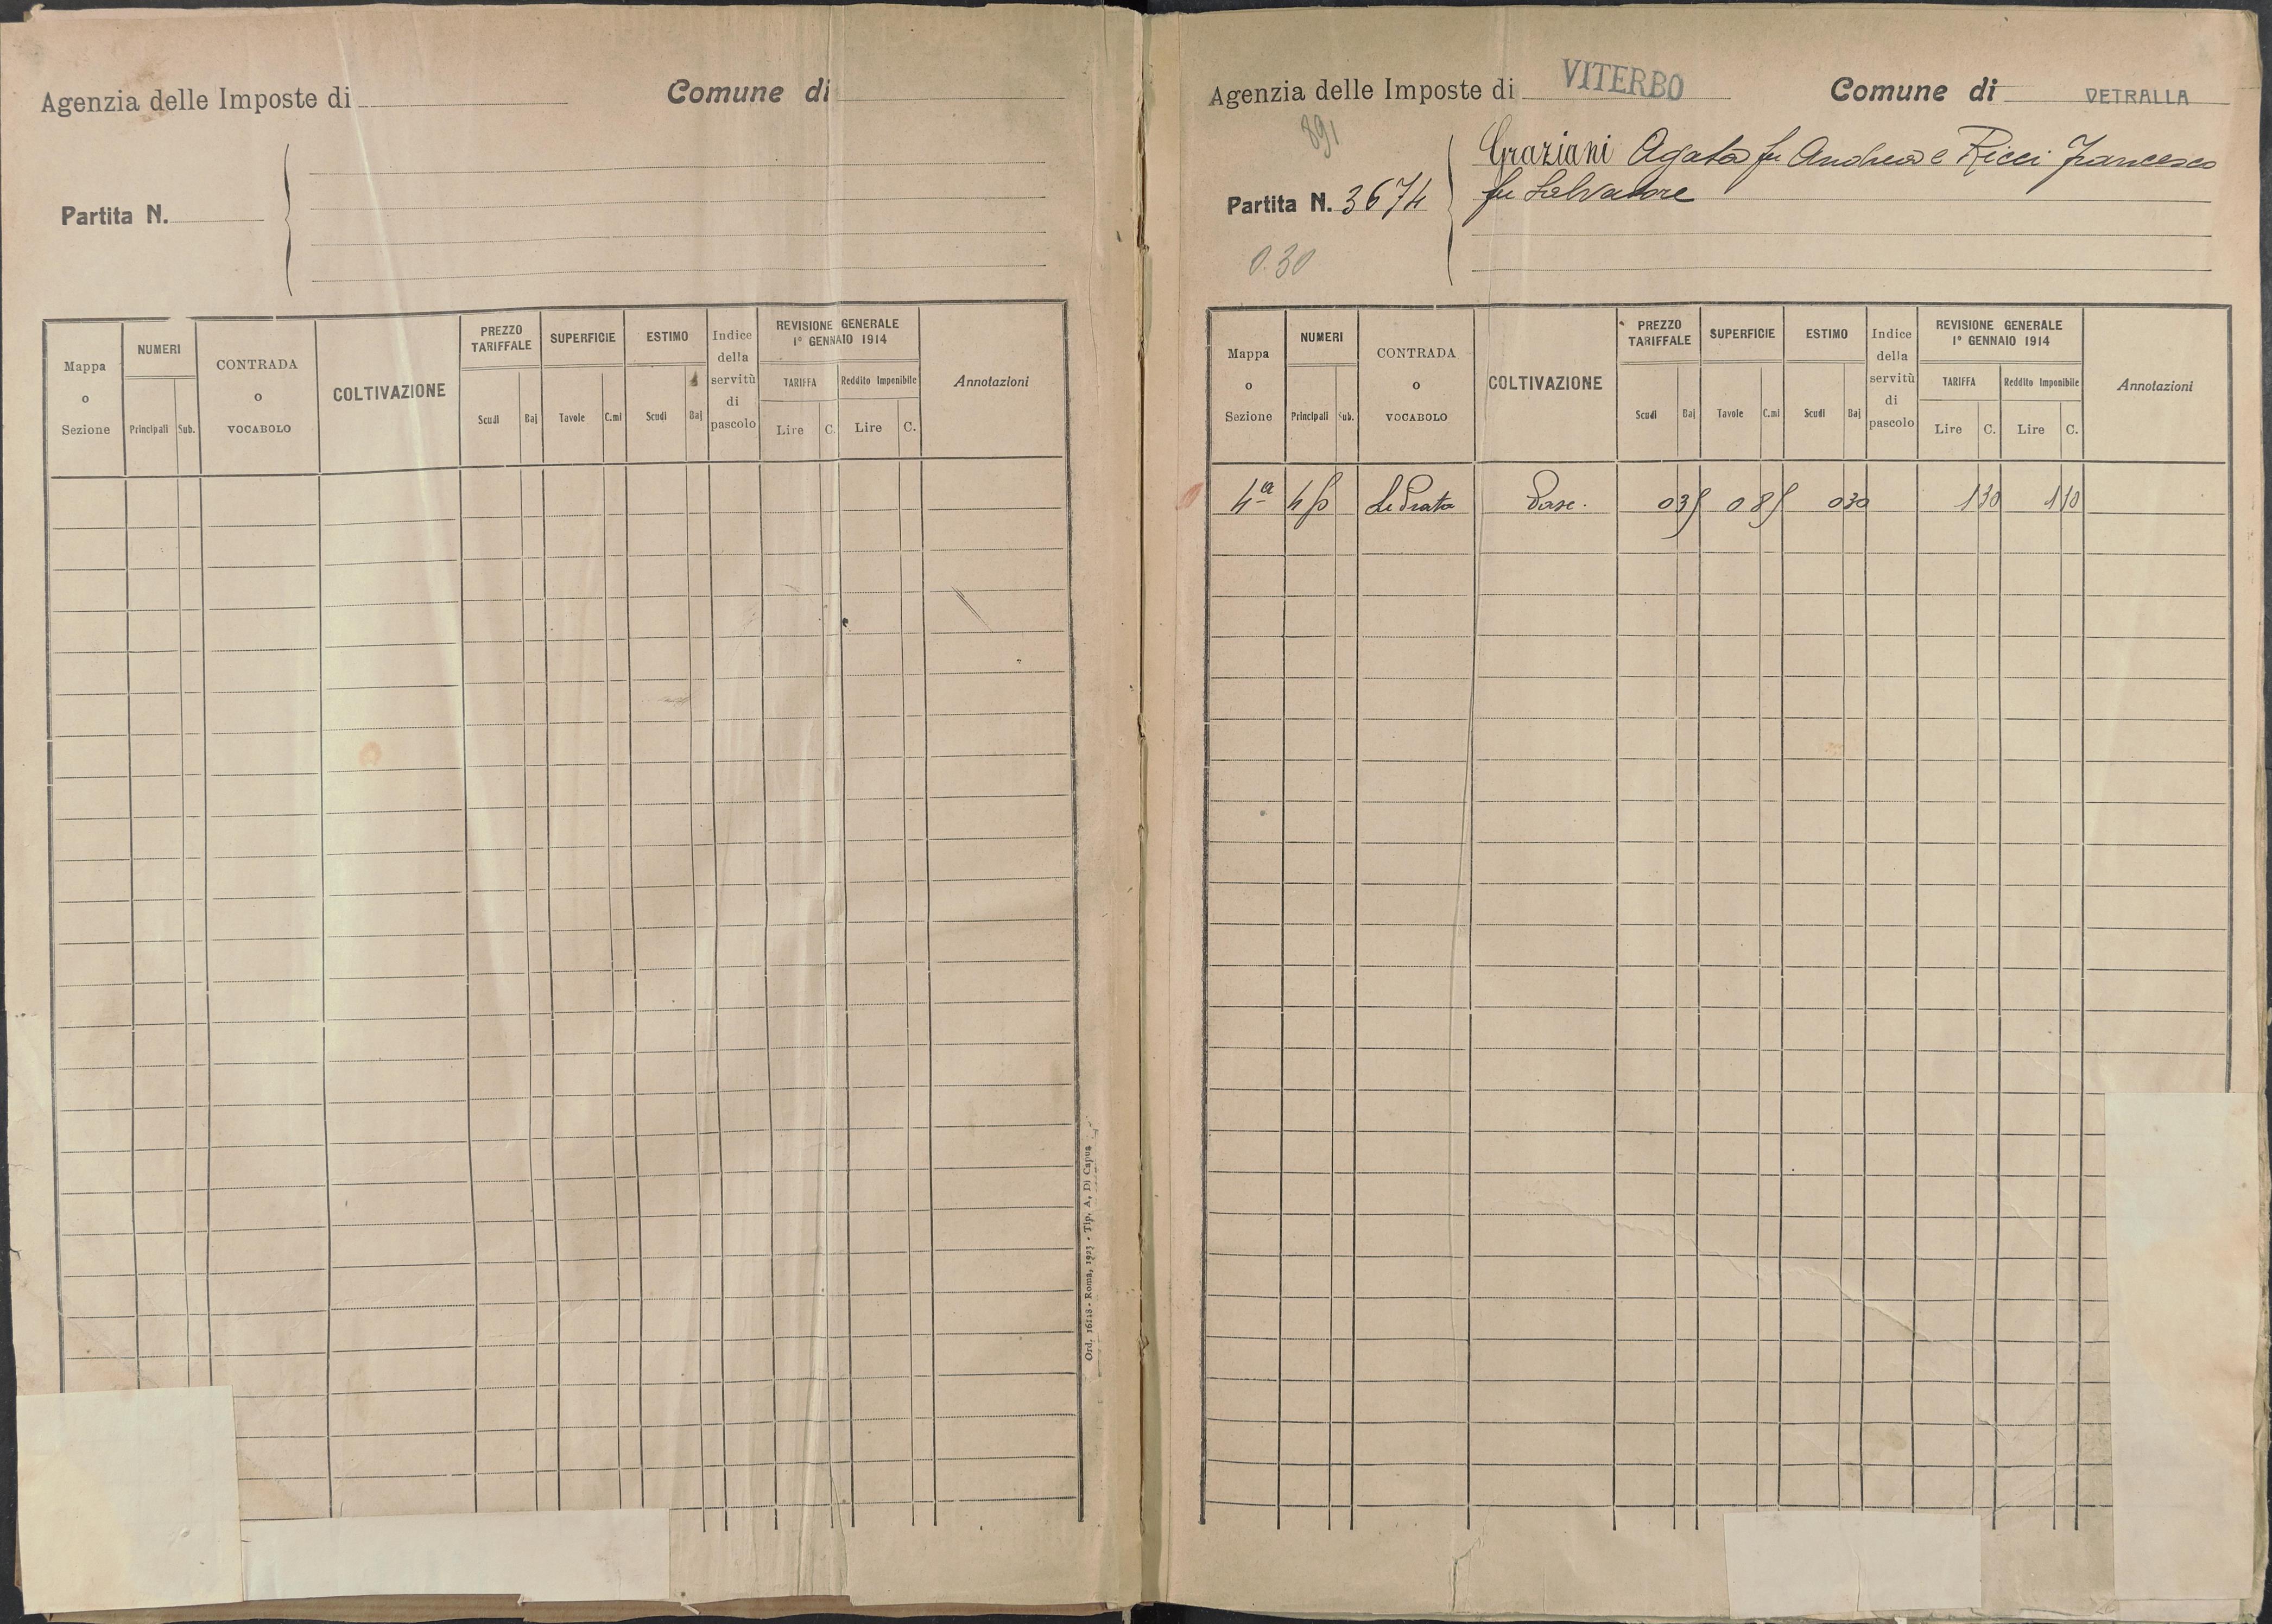 Agenzia delle Imposte di
Comune di
Partita N.
Mappa o Sezione
NUMERI
Principali Sub.
CONTRADA o VOCABOLO
COLTIVAZIONE
PREZZO TARIFFALE
Scudi Baj
SUPERFICIE
Tavole C.mi
ESTIMO
Scudi Baj
Indice della servitù di pascolo
REVISIONE GENERALE
1° GENNAIO 1914
TARIFFA
Lire C.
Reddito Imponibile
Lire C.
Annotazioni
Ord. 16118 - Roma, 1923 - Tip. A. Di Capua
Agenzia delle Imposte di VITERBO
Comune di VETRALLA
891
Partita N. 3674
Graziani Agata fu Andrea e Ricci Francesco
fu Salvatore
0.30
Mappa o Sezione
NUMERI
Principali Sub.
CONTRADA o VOCABOLO
COLTIVAZIONE
PREZZO TARIFFALE
Scudi Baj
SUPERFICIE
Tavole C.mi
ESTIMO
Scudi Baj
Indice della servitù di pascolo
REVISIONE GENERALE
1° GENNAIO 1914
TARIFFA
Lire C.
Reddito Imponibile
Lire C.
Annotazioni
4ª Le Prata Pasc. 035 085 030 130 110